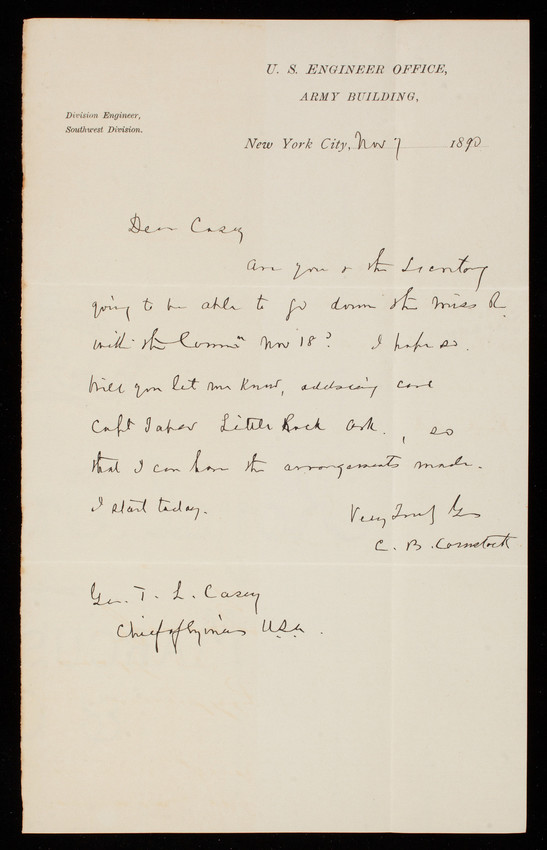 U. S. ENGINEER OFFICE,
ARMY BUILDING,
Division Engineer,
Southwest Division.
New York City, Nov 7 1890
Dear Casey
Are you & the Secretary
going to be able to go down the Miss R.
with the Comn Nov 18? I hope so.
Will you let me know, addressing care
Capt Taber Little Rock Ark., so
that I can have the arrangements made.
I start today.
Very Truly Yrs
C. B. Comstock
Gen. T. L. Casey
Chief of Engineers U.S.A.